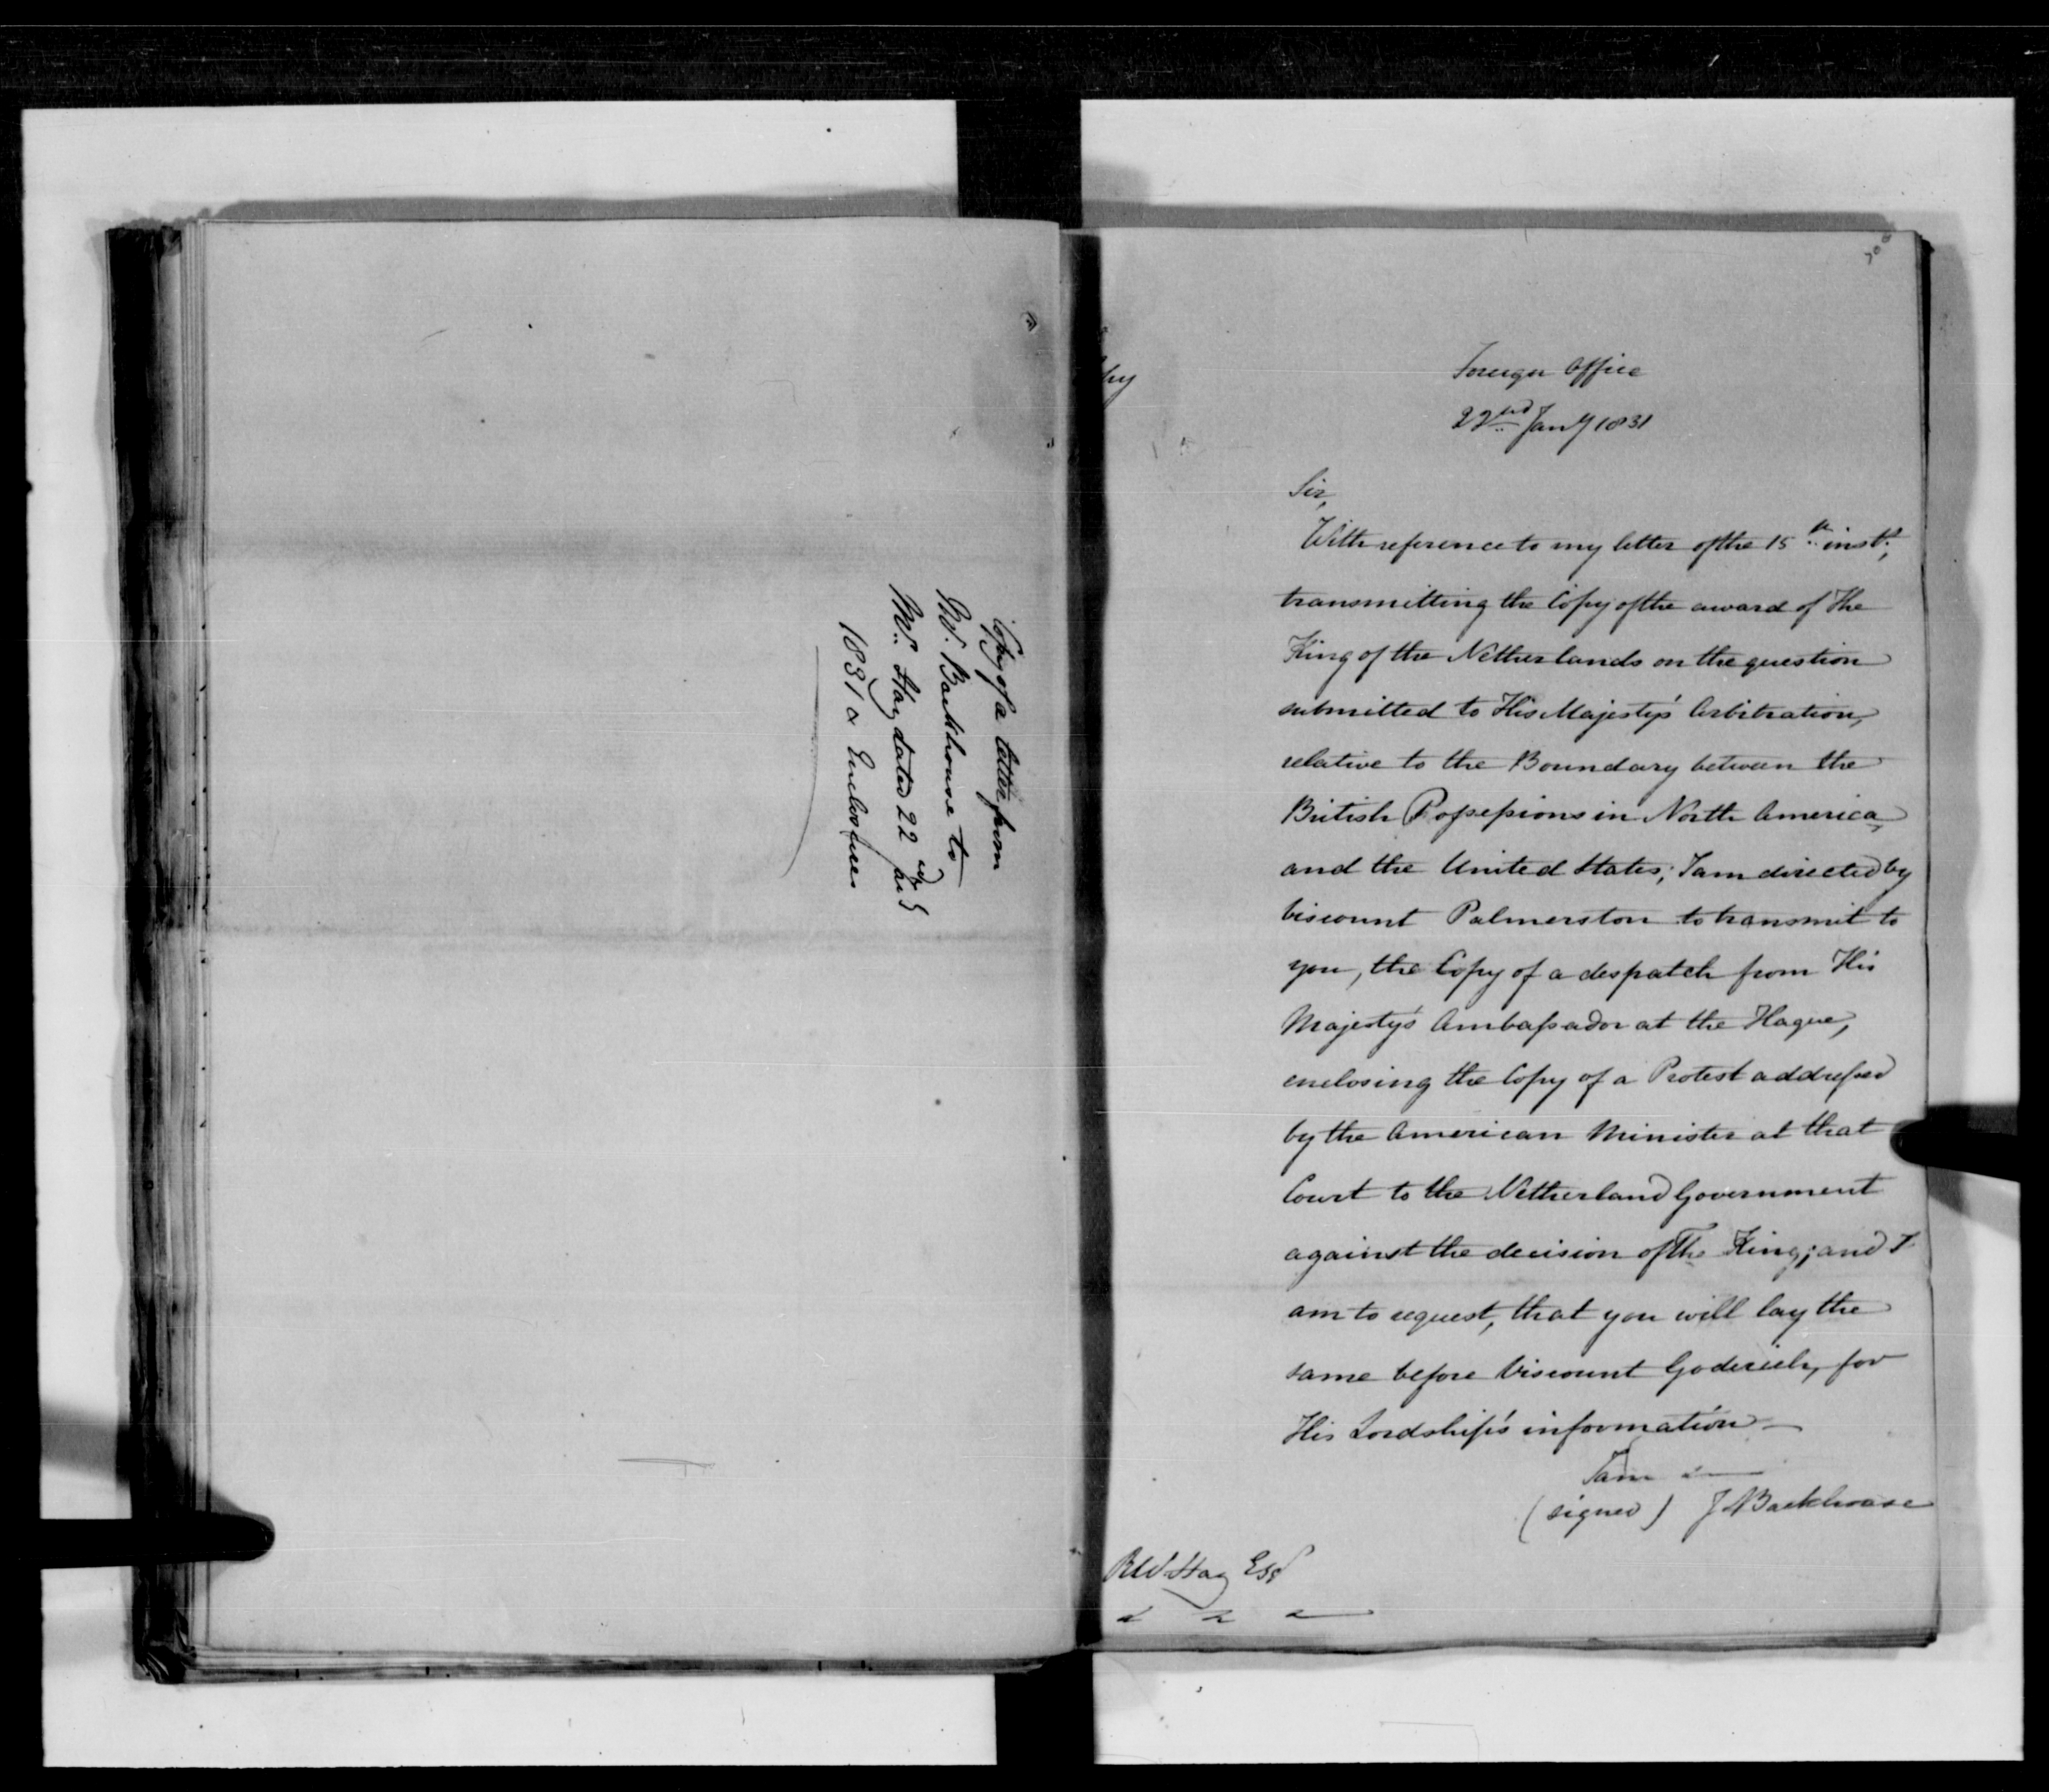 Copy of a letter from
Mr. Backhouse to
Mr. Hay dated 22nd
1831 & Enclosures
Foreign Office
22nd Jany 1831
Sir,
With reference to my letter of the 15th inst.,
transmitting the Copy of the award of The
King of the Netherlands on the question
submitted to His Majesty's Arbitration,
relative to the Boundary between the
British Possessions in North America,
and the United States; I am directed by
Viscount Palmerston to transmit to
you, the Copy of a despatch from His
Majesty's Ambassador at the Hague,
enclosing the Copy of a Protest addressed
by the American Minister at that
Court to the Netherland Government
against the decision of The King; and I
am to request, that you will lay the
same before Viscount Goderich, for
His Lordship's information—
I am &
(signed) J Backhouse
R W Hay Esqr
& & &